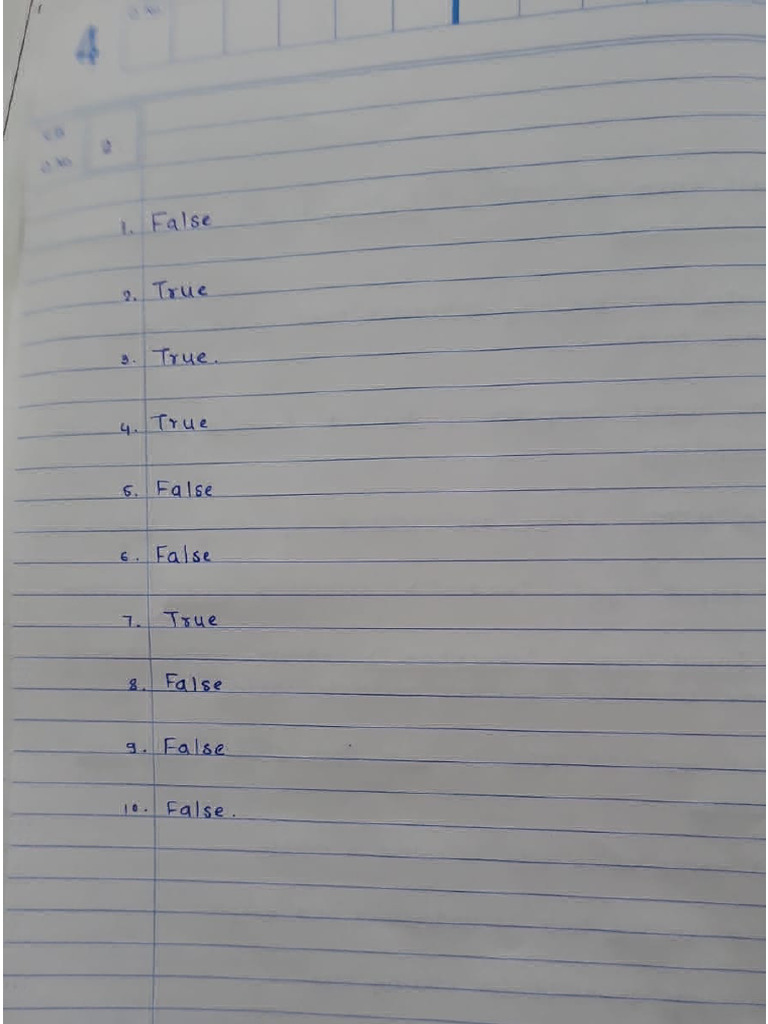 4
1. False
2. True
3. True.
4. True
5. False
6. False
7. True
8. False
9. False
10. False.